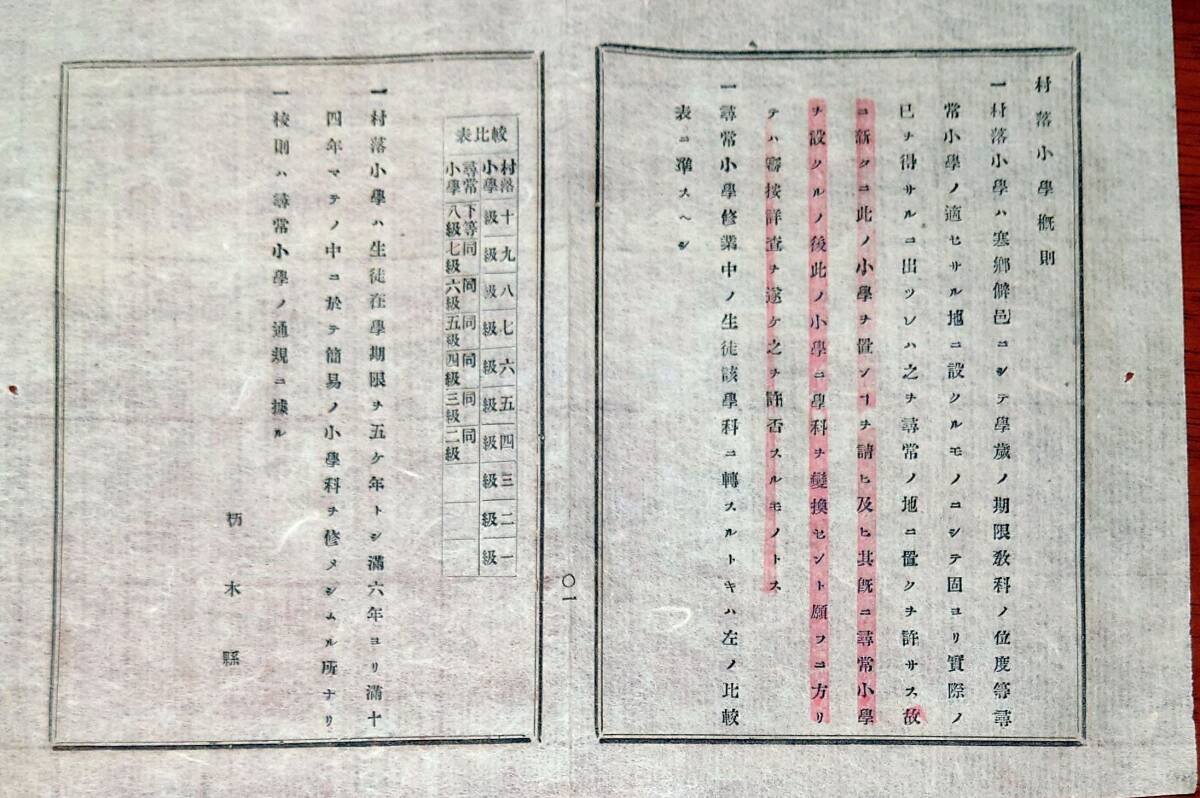 村落小學概則
一村落小學ハ寒鄉僻邑ニシテ學歲ノ期限敎科ノ位度等尋
常小學ノ適セサル地ニ設クルモノニシテ固ヨリ實際ノ
已ヲ得サルニ出ツレハ之ヲ尋常ノ地ニ置クヲ許サス故
ニ新タニ此ノ小學ヲ置ンヿヲ請ヒ及ヒ其既ニ尋常小學
ヲ設クルノ後此ノ小學ニ學科ヲ變換セント願フニ方リ
テハ審按詳査ヲ遂ケ之ヲ許否スルモノトス
一尋常小學修業中ノ生徒該學科ニ轉スルトキハ左ノ比較
表ニ準スヘシ
〇一
較比表
村落小學 十級 九級 八級 七級 六級 五級 四級 三級 二級 一級
尋常小學 下等八級 同七級 同六級 同五級 同四級 同三級 同二級
一村落小學ハ生徒在學期限ヲ五ケ年トシ滿六年ヨリ滿十
四年マテノ中ニ於テ簡易ノ小學科ヲ修メシムル所ナリ
一校則ハ尋常小學ノ通規ニ據ル
栃木縣